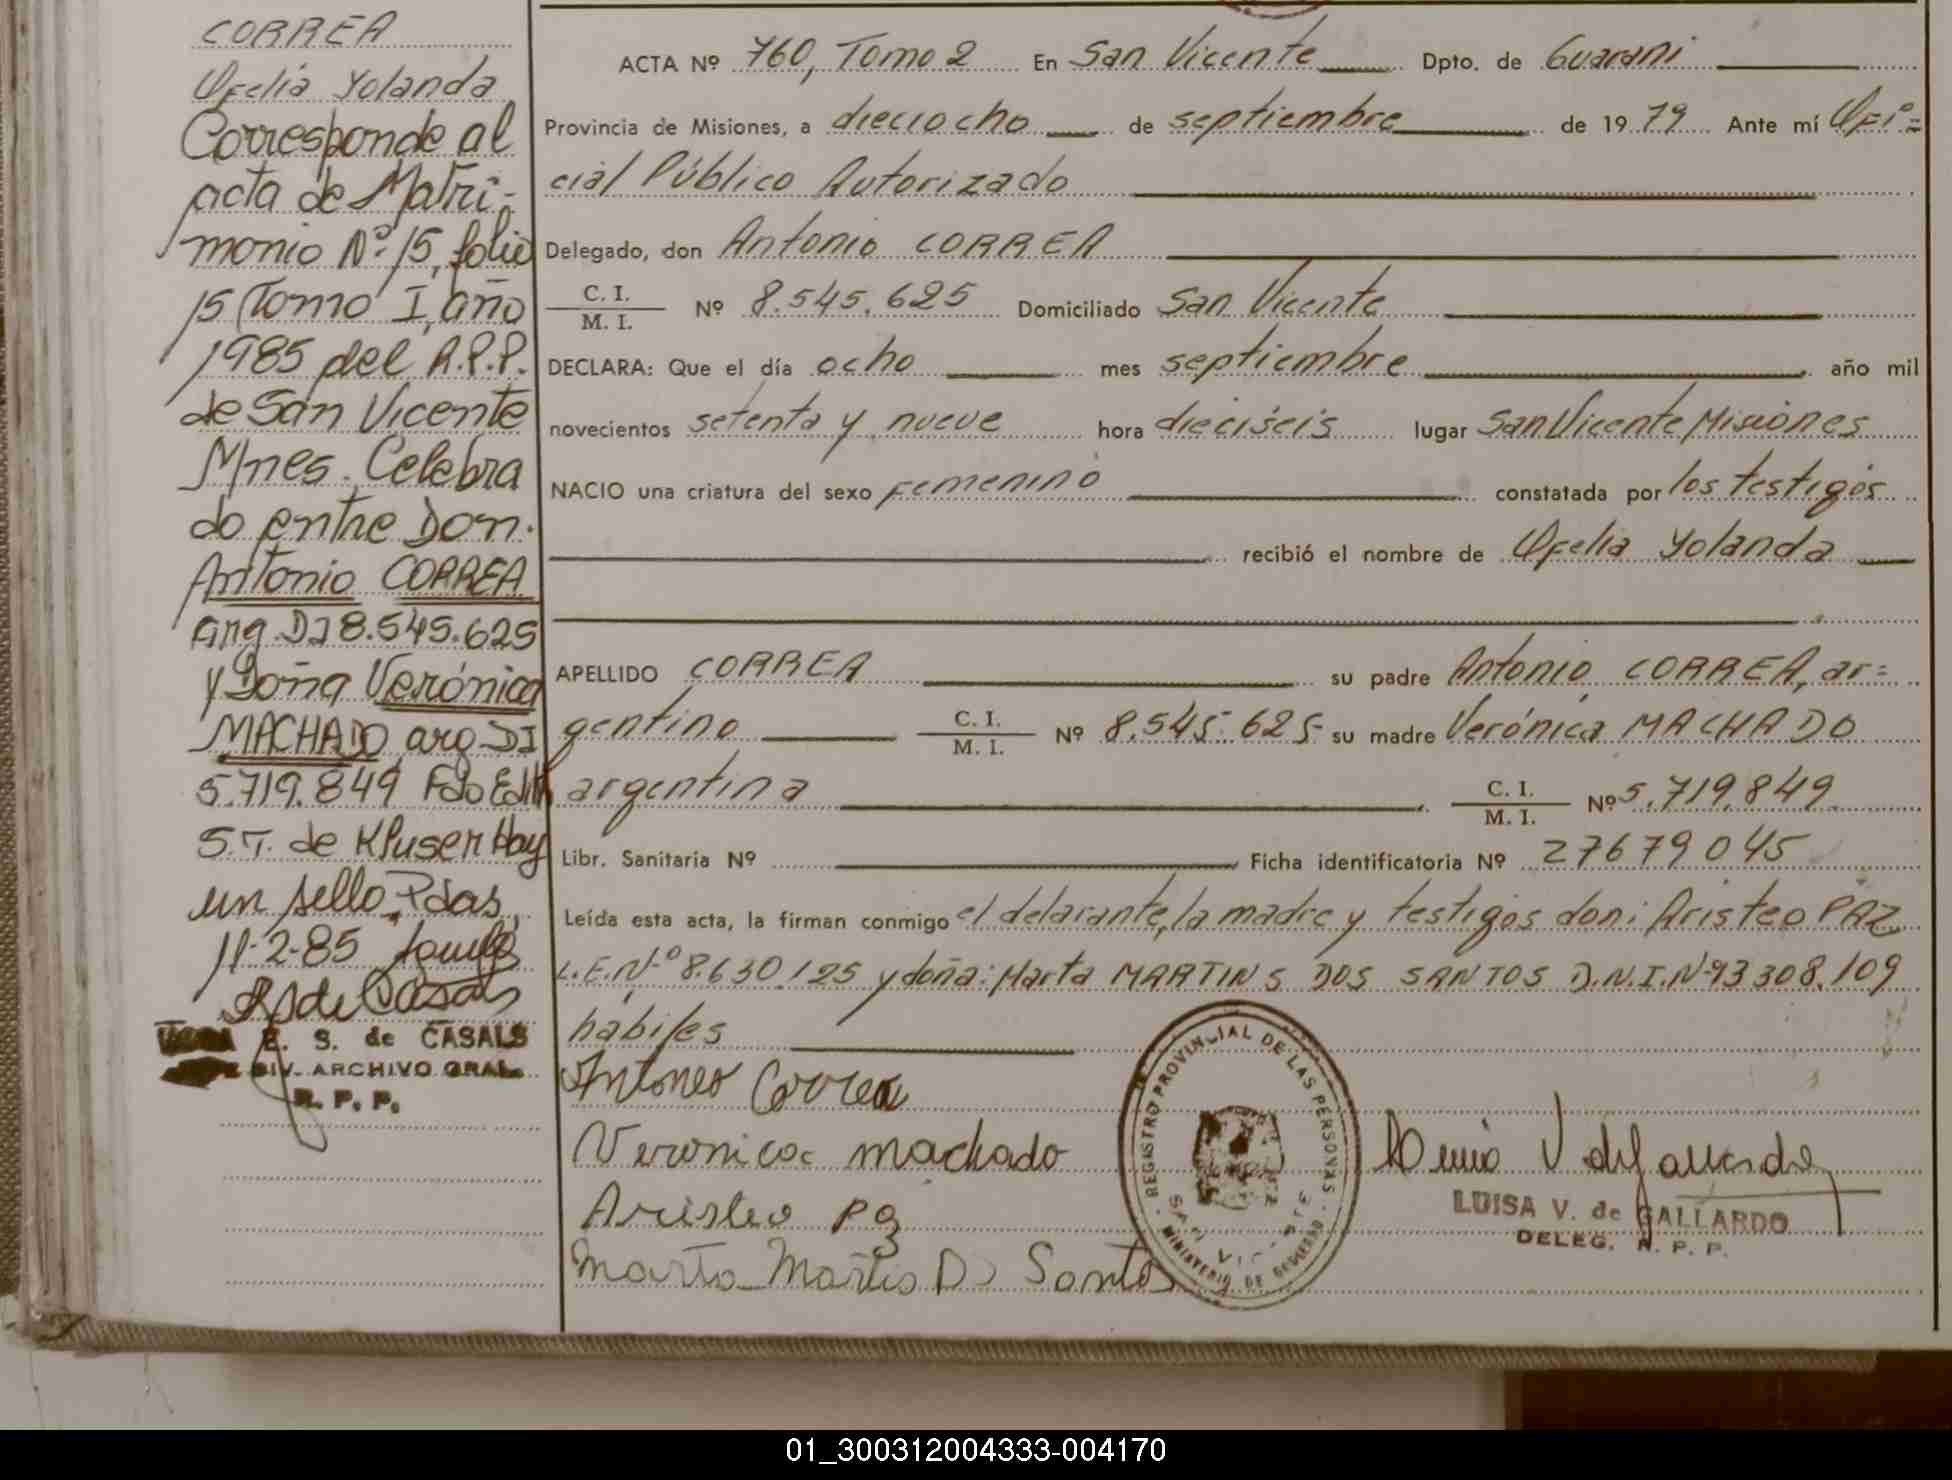 CORREA
Ofelia Yolanda
Corresponde al
acta de Matri-
monio Nº 15, folio
15 Tomo I, año
1985 del R.P.P.
de San Vicente
Mnes. Celebra
do entre Don.
Antonio CORREA
arg. DI 8.545.625
y Doña Verónica
MACHADO arg DI
5.719.849 Fdo Edith
S.T. de Kluser Hay
un sello. Pdas,
11-2-85
E. S. de CASALS
DIV. ARCHIVO GRAL.
R. P. P.
ACTA Nº 760, Tomo 2 En San Vicente Dpto. de Guaraní
Provincia de Misiones, a dieciocho de septiembre de 1979 Ante mí Ofi=
cial Público Autorizado
Delegado, don Antonio CORREA
C. I. / M. I. Nº 8.545.625 Domiciliado San Vicente
DECLARA: Que el día ocho mes septiembre año mil
novecientos setenta y nueve hora dieciséis lugar San Vicente Misiones
NACIO una criatura del sexo femenino constatada por los testigos
recibió el nombre de Ofelia Yolanda
APELLIDO CORREA su padre Antonio CORREA, ar=
gentino C. I. / M. I. Nº 8.545.625 su madre Verónica MACHADO
argentina C. I. / M. I. Nº 5.719.849
Libr. Sanitaria Nº Ficha identificatoria Nº 27679045
Leída esta acta, la firman conmigo el delarante, la madre y testigos don: Aristeo PAZ
L.E.Nº 8.630.125 y doña: Marta MARTINS DOS SANTOS D.N.I.Nº 93308.109
hábiles
Antoneo Correa
Veronica machado
Aristeo Paz
REGISTRO PROVINCIAL DE LAS PERSONAS
SAN VICENTE
MINISTERIO DE GOBIERNO
LUISA V. de GALLARDO
DELEG. R. P. P.
01_300312004333-004170